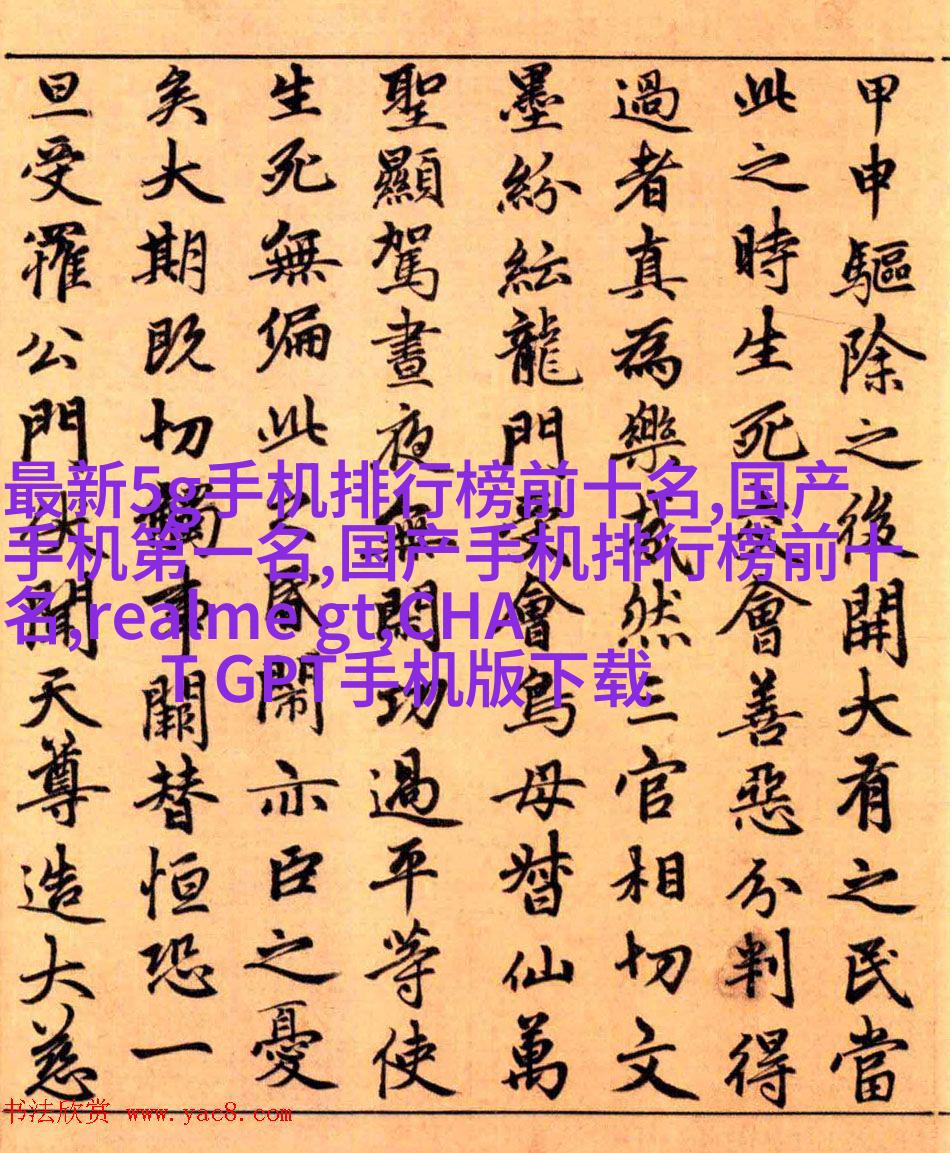 甲申驅除之後開大有之民當
此之時生死交會善惡分判得
過者真為樂哉然三官相切文
墨紛紜龍門受會鳥母督仙萬
聖顯駕晝夜無閑功過平等使
生死無偏此鬧亦臣之憂
矣大期既切觸事闢替恒恐一
旦受罹公門開天尊造大慈
最新5g手机排行榜前十名,国产
手机第一名,国产手机排行榜前十
名,realme gt,CHA
T GPT手机版下载
书法欣赏 www.yac8.com